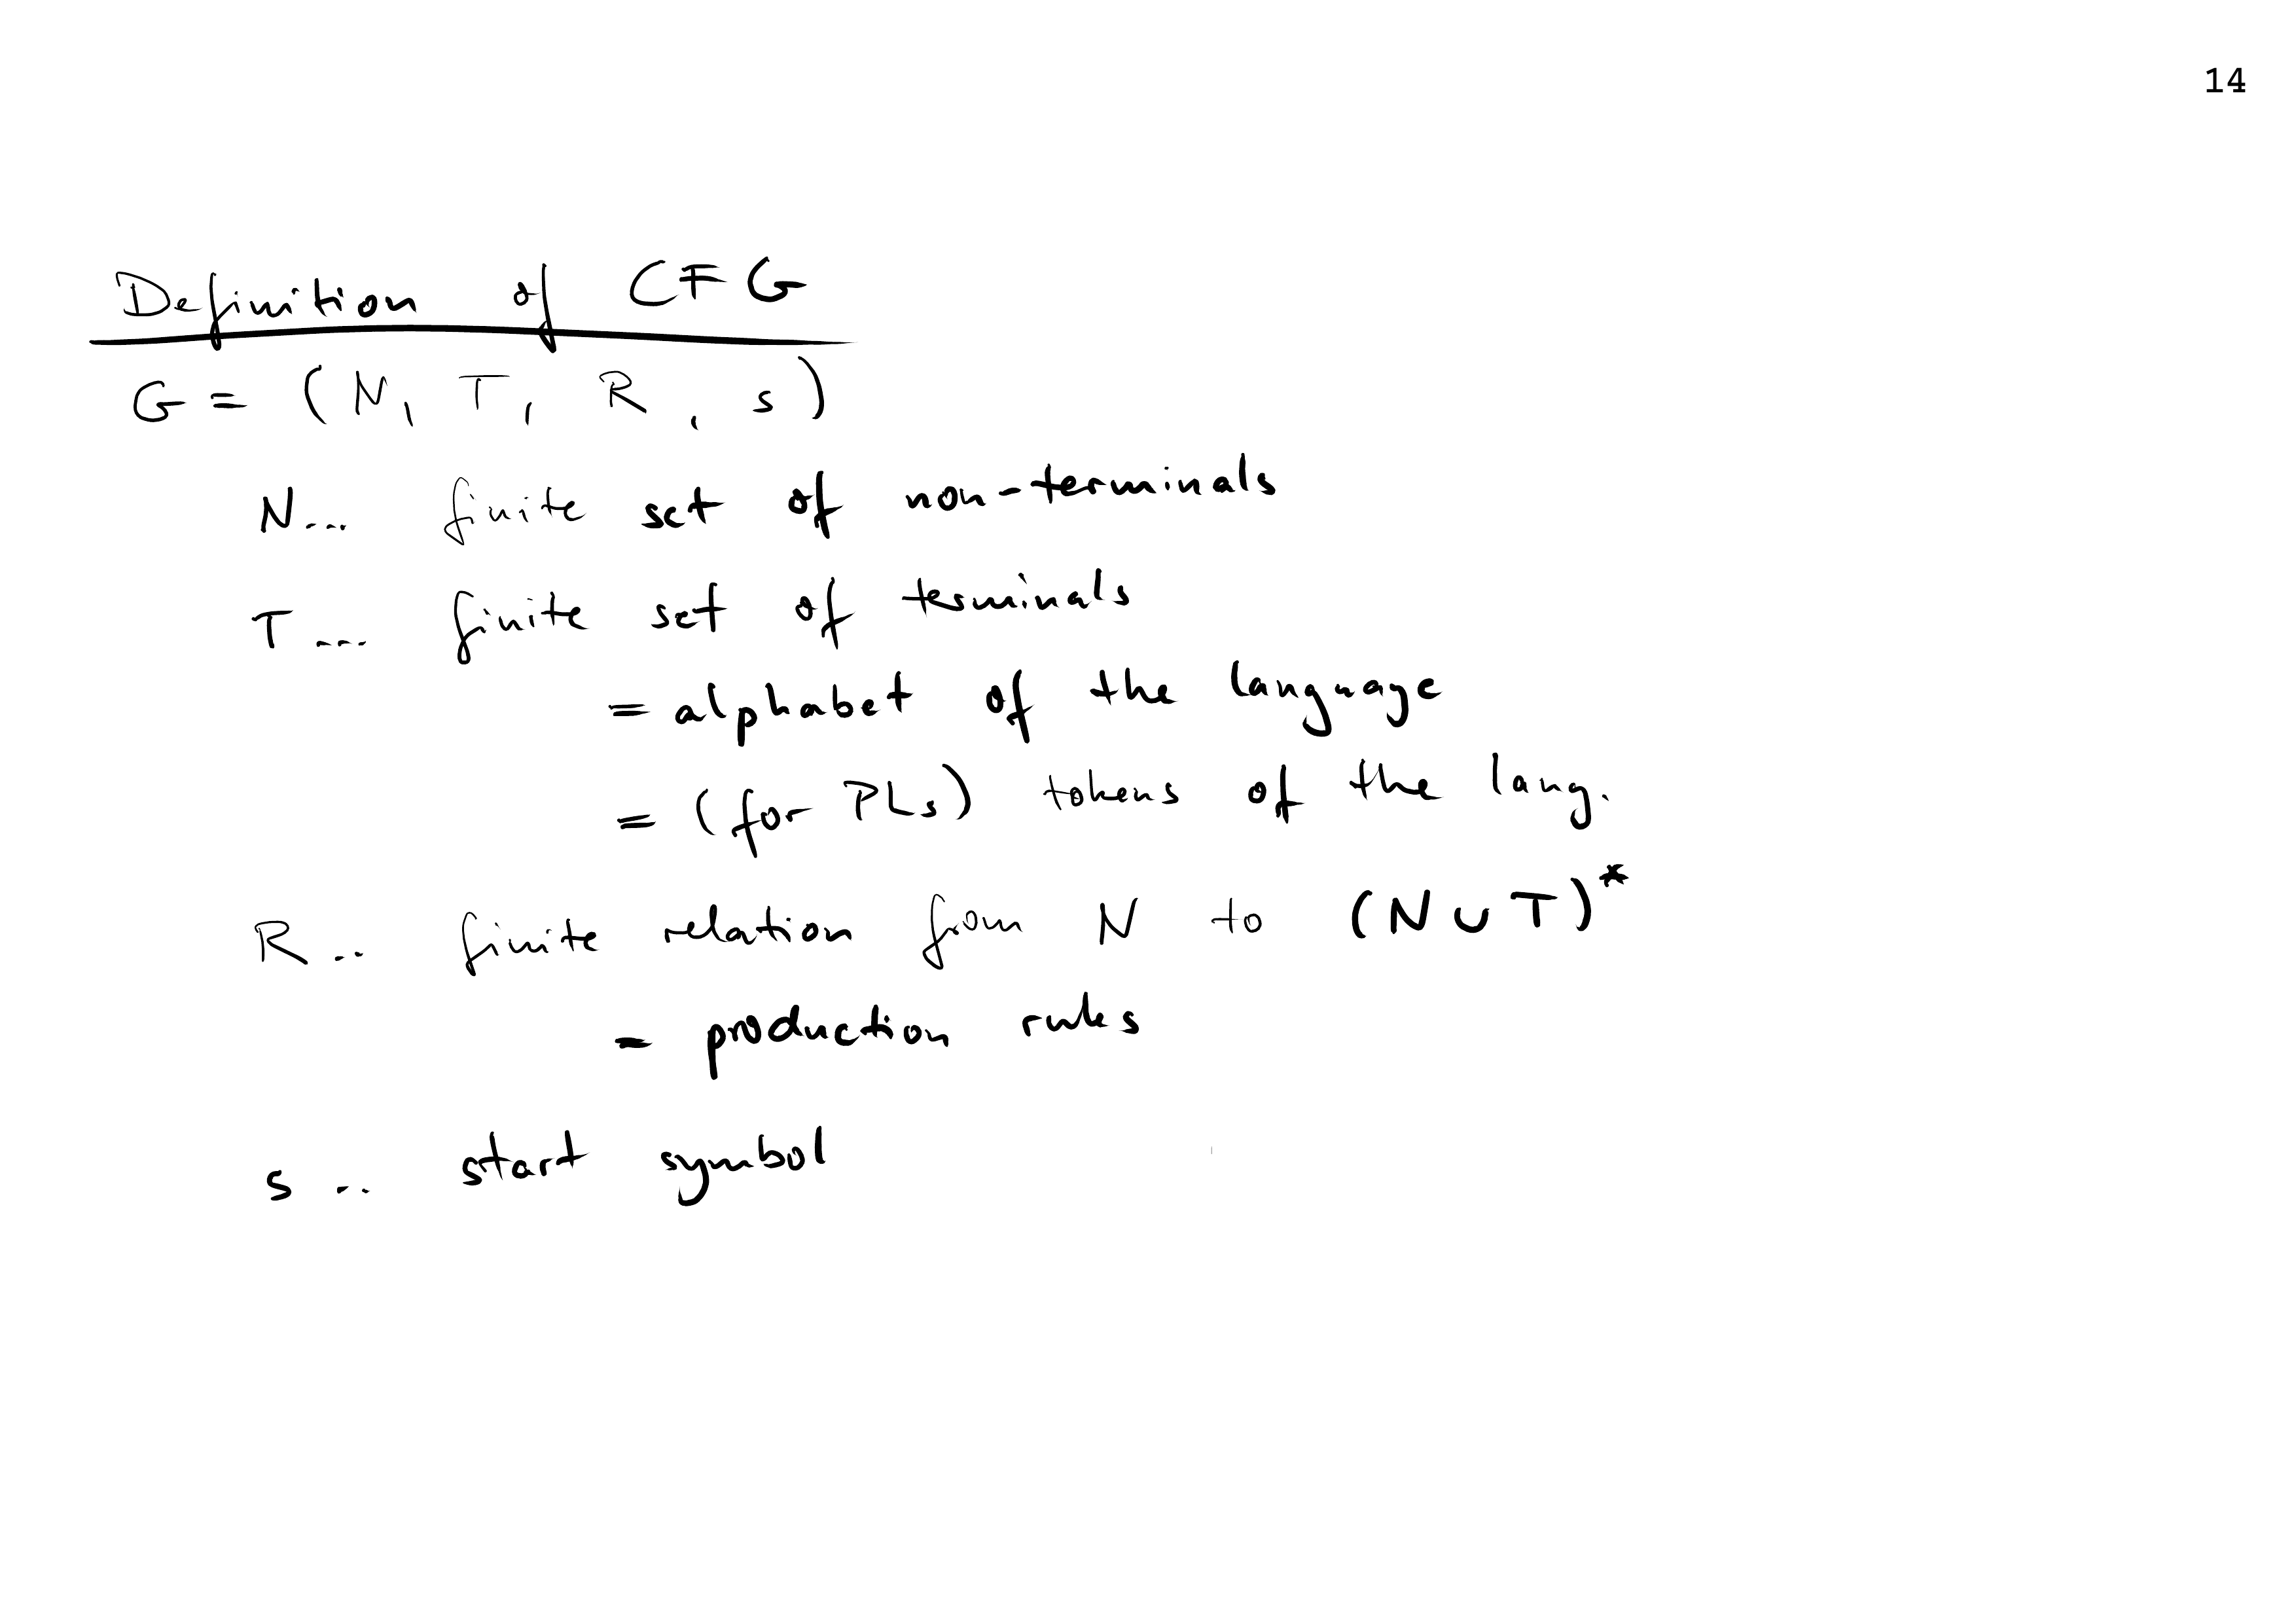 14
Definition of CFG
G = (N, T, R, s)
N... finite set of non-terminals
T... finite set of terminals
= alphabet of the language
= (for PLs) tokens of the lang.
R.. finite relation from N to (N ∪ T)*
= production rules
s .. start symbol